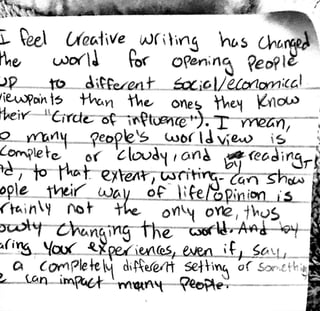 I feel Creative writing has changed
the world for opening people
up to different social/economical
viewpoints than the ones they know
their "circle of influence"). I mean,
o many people's worldview is
complete or cloudy, and reading-
d, to that extent, writing- can show
ople their way of life/opinion is
rtainly not the only one, thus
owly changing the world. And by
aring your experiences, even if, say,
a completely different setting or somethi
e can impact many people.